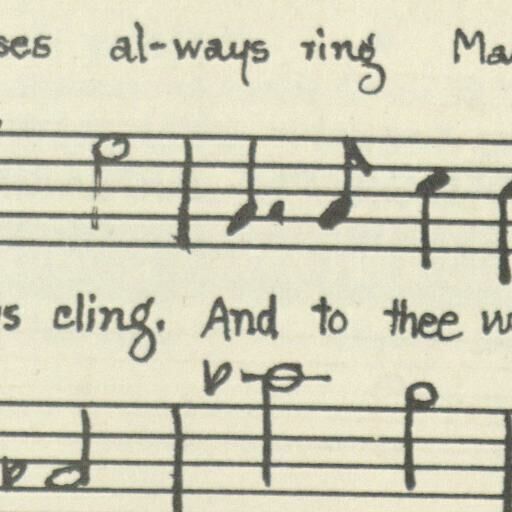 ses al-ways ring Ma
s cling. And to thee w